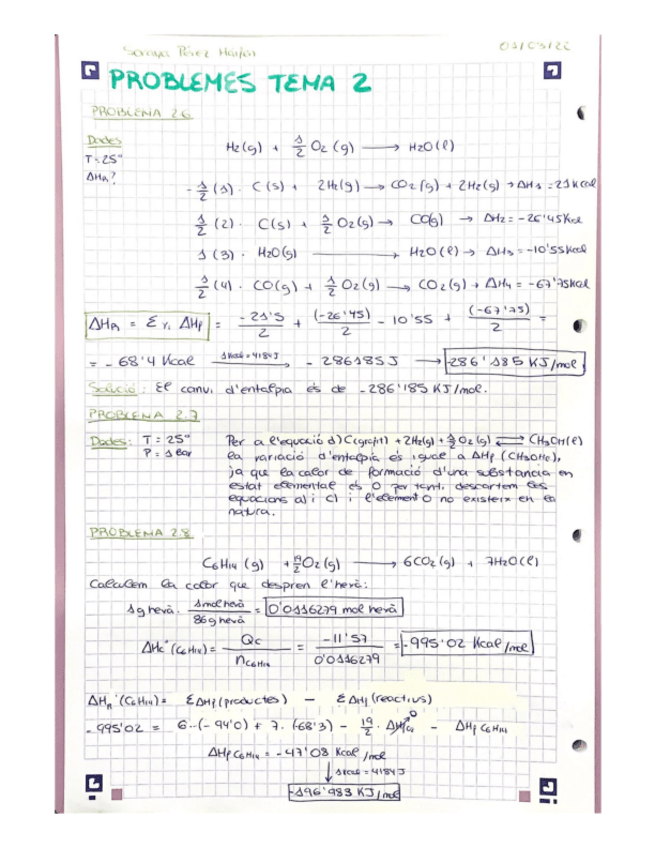 Soraya Pérez
PROBLEMES TEMA 2
PROBLEMA 2.6
Dades
T=25°
H2(g) + 1/2 O2(g) → H2O(l)
-1/2 (1). C(s) + 2H2(g) → CO2(g) + 2H2(g) → ΔH1 = 21 Kcal
1/2 (2). C(s) + 1/2 O2(g) → CO(g) → ΔH2 = -26'45 Kcal
1 (3). H2O(g) → H2O(l) → ΔH3 = -10'55 Kcal
1/2 (4). CO(g) + 1/2 O2(g) → CO2(g) → ΔH4 = -67'75 Kcal
= -21'5/2 + (-26'45)/2 - 10'55 + (-67'75)/2 =
= -68'4 Kcal 1Kcal = 4184J → -286185 J → -286'185 KJ/mol
Solució: El canvi d'entalpia és de -286'185 KJ/mol.
PROBLEMA 2.7
Dades: T = 25° Per a l'equació d) C(grafit) + 2H2(g) + 1/2 O2(g) ⇄ CH3OH(l)
P = 1 bar la variació d'entalpia és igual a ΔHf (CH3OH(l)),
ja que la calor de formació d'una substància en
estat elemental és 0 per tant, descartem les
equacions a) i c) i l'element O no existeix en la
natura.
PROBLEMA 2.8
C6H14 (g) + 19/2 O2 (g) → 6CO2 (g) + 7H2O(l)
Calculem la calor que despren l'hexà:
1g hexà. 1mol hexà/86g hexà = 0'0116279 mol hexà
ΔHc°(C6H14) = Qc/nC6H14 = -11'57/0'0116279 = -995'02 Kcal/mol
ΔHR°(C6H14) = ΣΔHf (productes) - ΣΔHf (reactius)
-995'02 = 6·(-94'0) + 7·(-68'3) - 19/2 · ΔHfO2 0 - ΔHf C6H14
ΔHf C6H14 = -47'08 Kcal/mol
↓ 1Kcal = 4184J
-196'983 KJ/mol